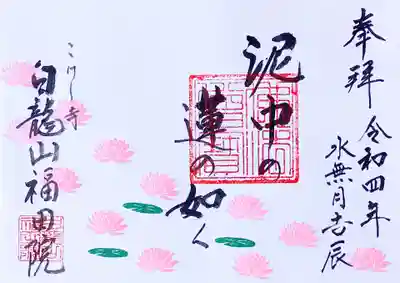 奉拝
令和四年
水無月吉辰
泥中の
蓮の如く
こつし寺
白龍山福田院